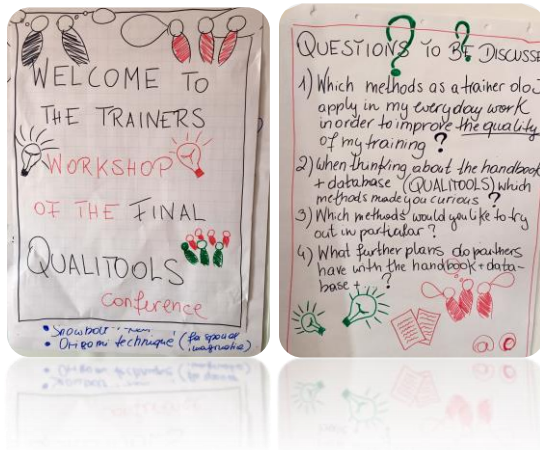 WELCOME TO
THE TRAINERS
WORKSHOP
OF THE FINAL
QUALITOOLS
conference
• Snowball
• Origami technique (
imagination)
QUESTIONS TO BE DISCUSSE
1) Which methods as a trainer do I
apply in my everyday work
in order to improve the quality
of my training ?
2) When thinking about the handbook
+ database (QUALITOOLS) which
methods made you curious ?
3) Which methods would you like to try
out in particular ?
4) What further plans do partners
have with the handbook + data-
base + ... ?